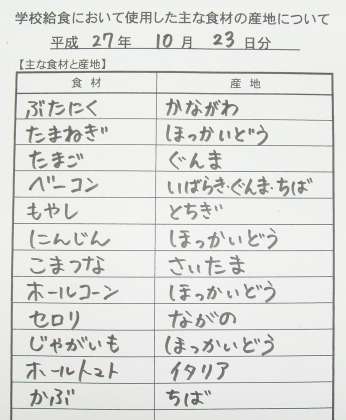 学校給食において使用した主な食材の産地について
平成 27年 10月 23日分
【主な食材と産地】
食材 産地
ぶたにく かながわ
たまねぎ ほっかいどう
たまご ぐんま
ベーコン いばらき・ぐんま・ちば
もやし とちぎ
にんじん ほっかいどう
こまつな さいたま
ホールコーン ほっかいどう
セロリ ながの
じゃがいも ほっかいどう
ホールトマト イタリア
かぶ ちば